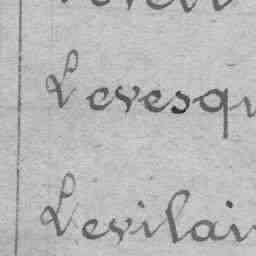 Levesqu
Levilai